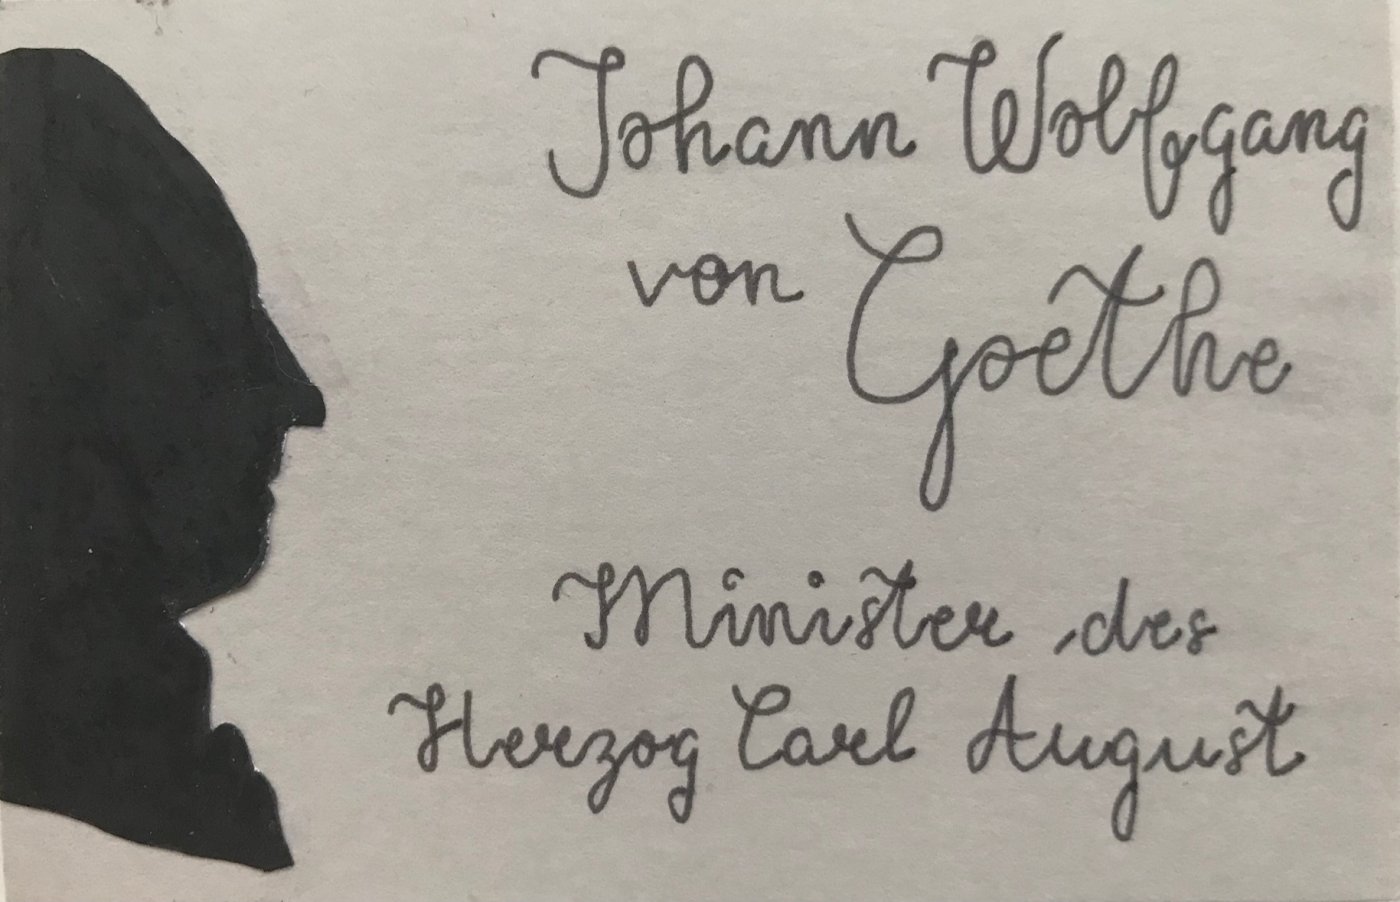 Johann Wolfgang
von Goethe
Minister des
Herzog Carl August